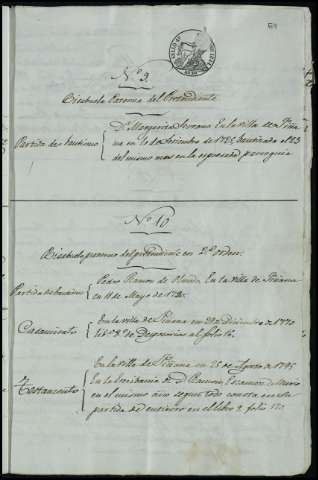 Nº 9.
Bisabuela Paterna del Pretendiente
Partida de Bautismo
Dª Margarita Serrana En la villa de
na en 10 de Setiembre de Bautizada el 23
del mismo mes en la espresada parroquia
Nº 10.
Bisabuelo paterno del pretendiente en 2º orden.
Partida de Bautismo
Pedro Ramon de En la villa de Peñarna
en 11 de Mayo de
Casamiento
En la villa de en 20 de Diciembre de 1770
Libº 3º de Desposorios al folio
Testamento
En la villa de en 25 de Agosto de 1795
En la Escribania de D. Ramon
en el mismo año segun todo consta en esta
partida de entierro en el libro 2 folio 120